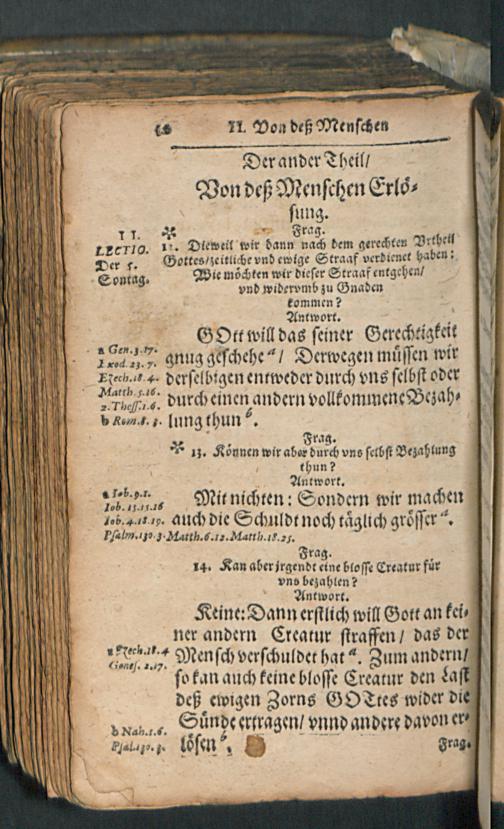 II. Von deß Menschen
Der ander Theil/
Von deß Menschen Erlö-
sung.
II.
LECTIO.
Der 5.
Sontag.
Frag.
12. Dieweil wir dann nach dem gerechten Vrtheil
Gottes/zeitliche vnd ewige Straaf verdienet haben:
Wie möchten wir dieser Straaf entgehen/
vnd widervmb zu Gnaden
kommen?
Antwort.
GOtt will das seiner Gerechtigkeit
gnug geschehe a/ Derwegen müssen wir
derselbigen entweder durch vns selbst oder
durch einen andern vollkommene Bezah-
lung thun b.
a Gen.3.17.
Exod.23.7.
Ezech.18.4.
Matth.5.16.
2.Thess.1.6.
b Rom.8.3.
Frag.
13. Können wir aber durch vns selbst Bezahlung
thun?
Antwort.
Mit nichten: Sondern wir machen
auch die Schuldt noch täglich grösser a.
a Iob.9.1.
Iob.15.15.16
Iob.4.18.19.
Psalm.130.3. Matth.6.12. Matth.18.25.
Frag.
14. Kan aber jrgendt eine blosse Creatur für
vns bezahlen?
Antwort.
Keine: Dann erstlich will Gott an kei-
ner andern Creatur straffen/ das der
Mensch verschuldet hat a. Zum andern/
so kan auch keine blosse Creatur den Last
deß ewigen Zorns GOTtes wider die
Sünde ertragen/ vnnd andere davon er-
lösen b.
a Ezech.18.4
Genes.2.17.
b Nah.1.6.
Psal.130.3.
Frag.